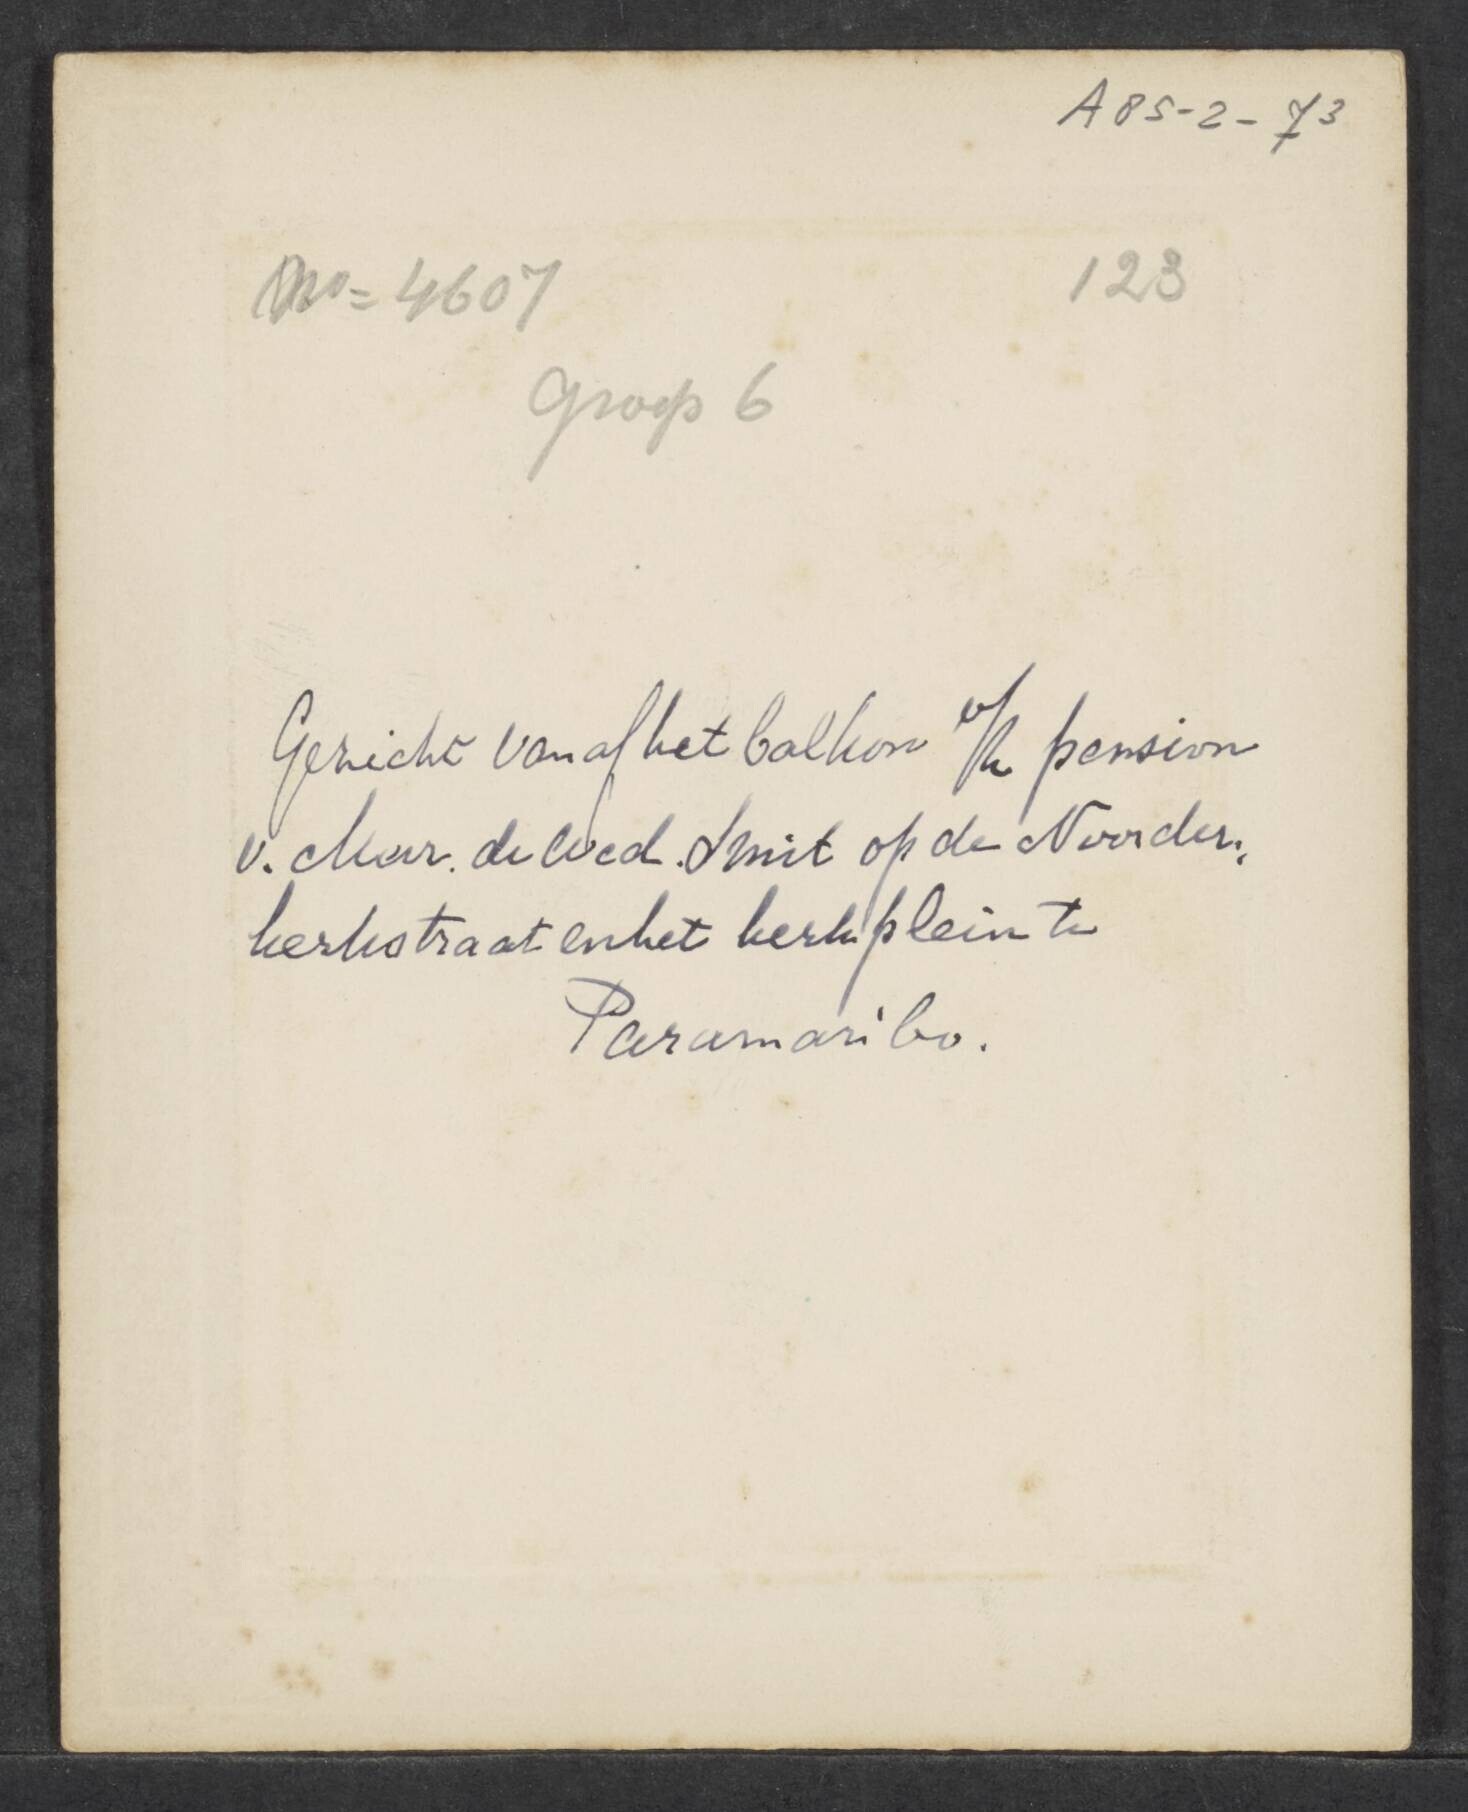 A85-2-73
No= 4607
123
Groep 6
Gezicht vanaf het balkon v/h pension
v. Mevr. de Wed. Smit op de Noorder-
kerkstraat en het kerkplein te
Paramaribo.